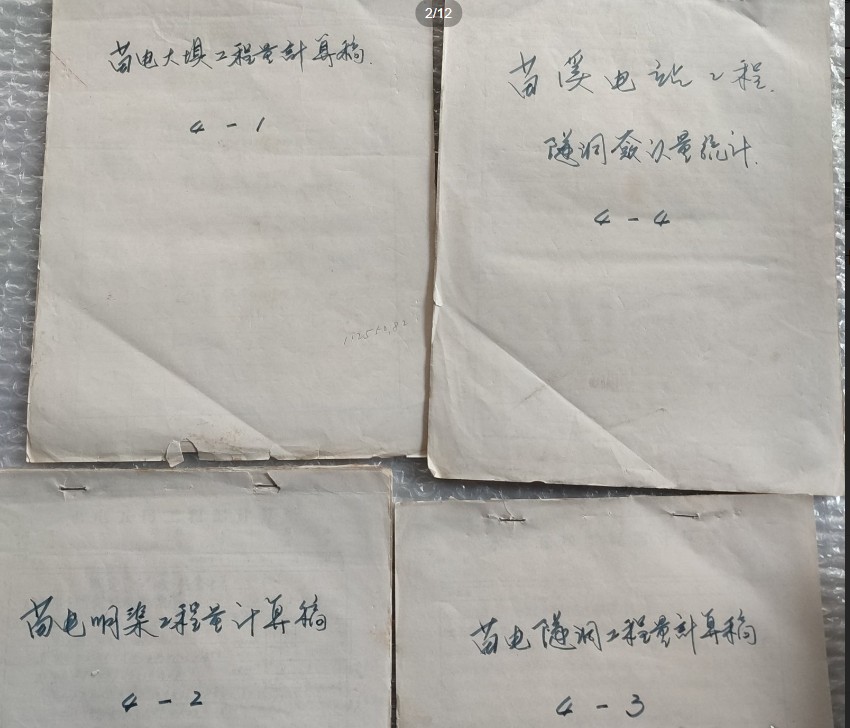 2/12
苗电大埧工程量計算稿.
4-1
苗溪电站工程.
隧洞歀次量统计.
4-4
苗电明渠工程量计算稿
4-2
苗电隧洞工程量計算稿
4-3